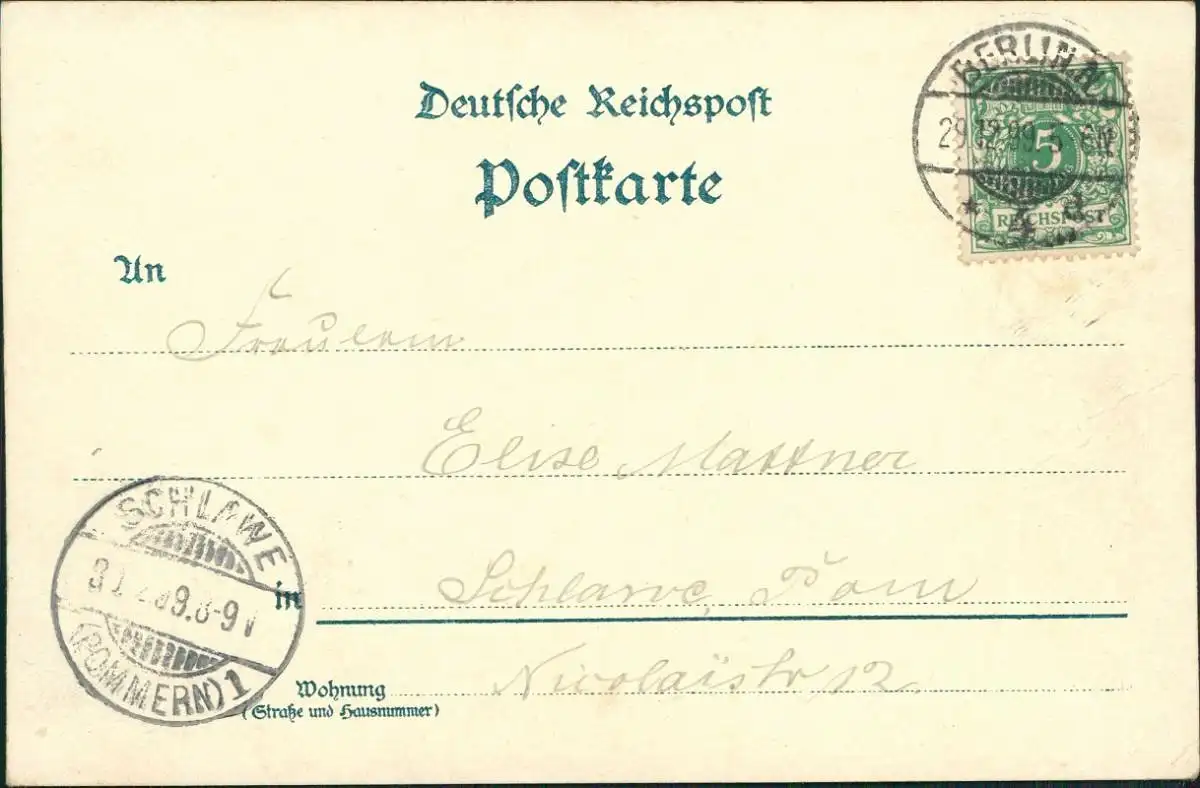 Deutsche Reichspost
Postkarte
BERLIN N.
29.12.99. 5
4
5
REICHSPOST
An
Fräulein
Elise Mattner
SCHLAWE
8-9 V
(POMMERN) 1
in Schlawe, Pom
Nicolaistr 12
Wohnung
(Straße und Hausnummer)